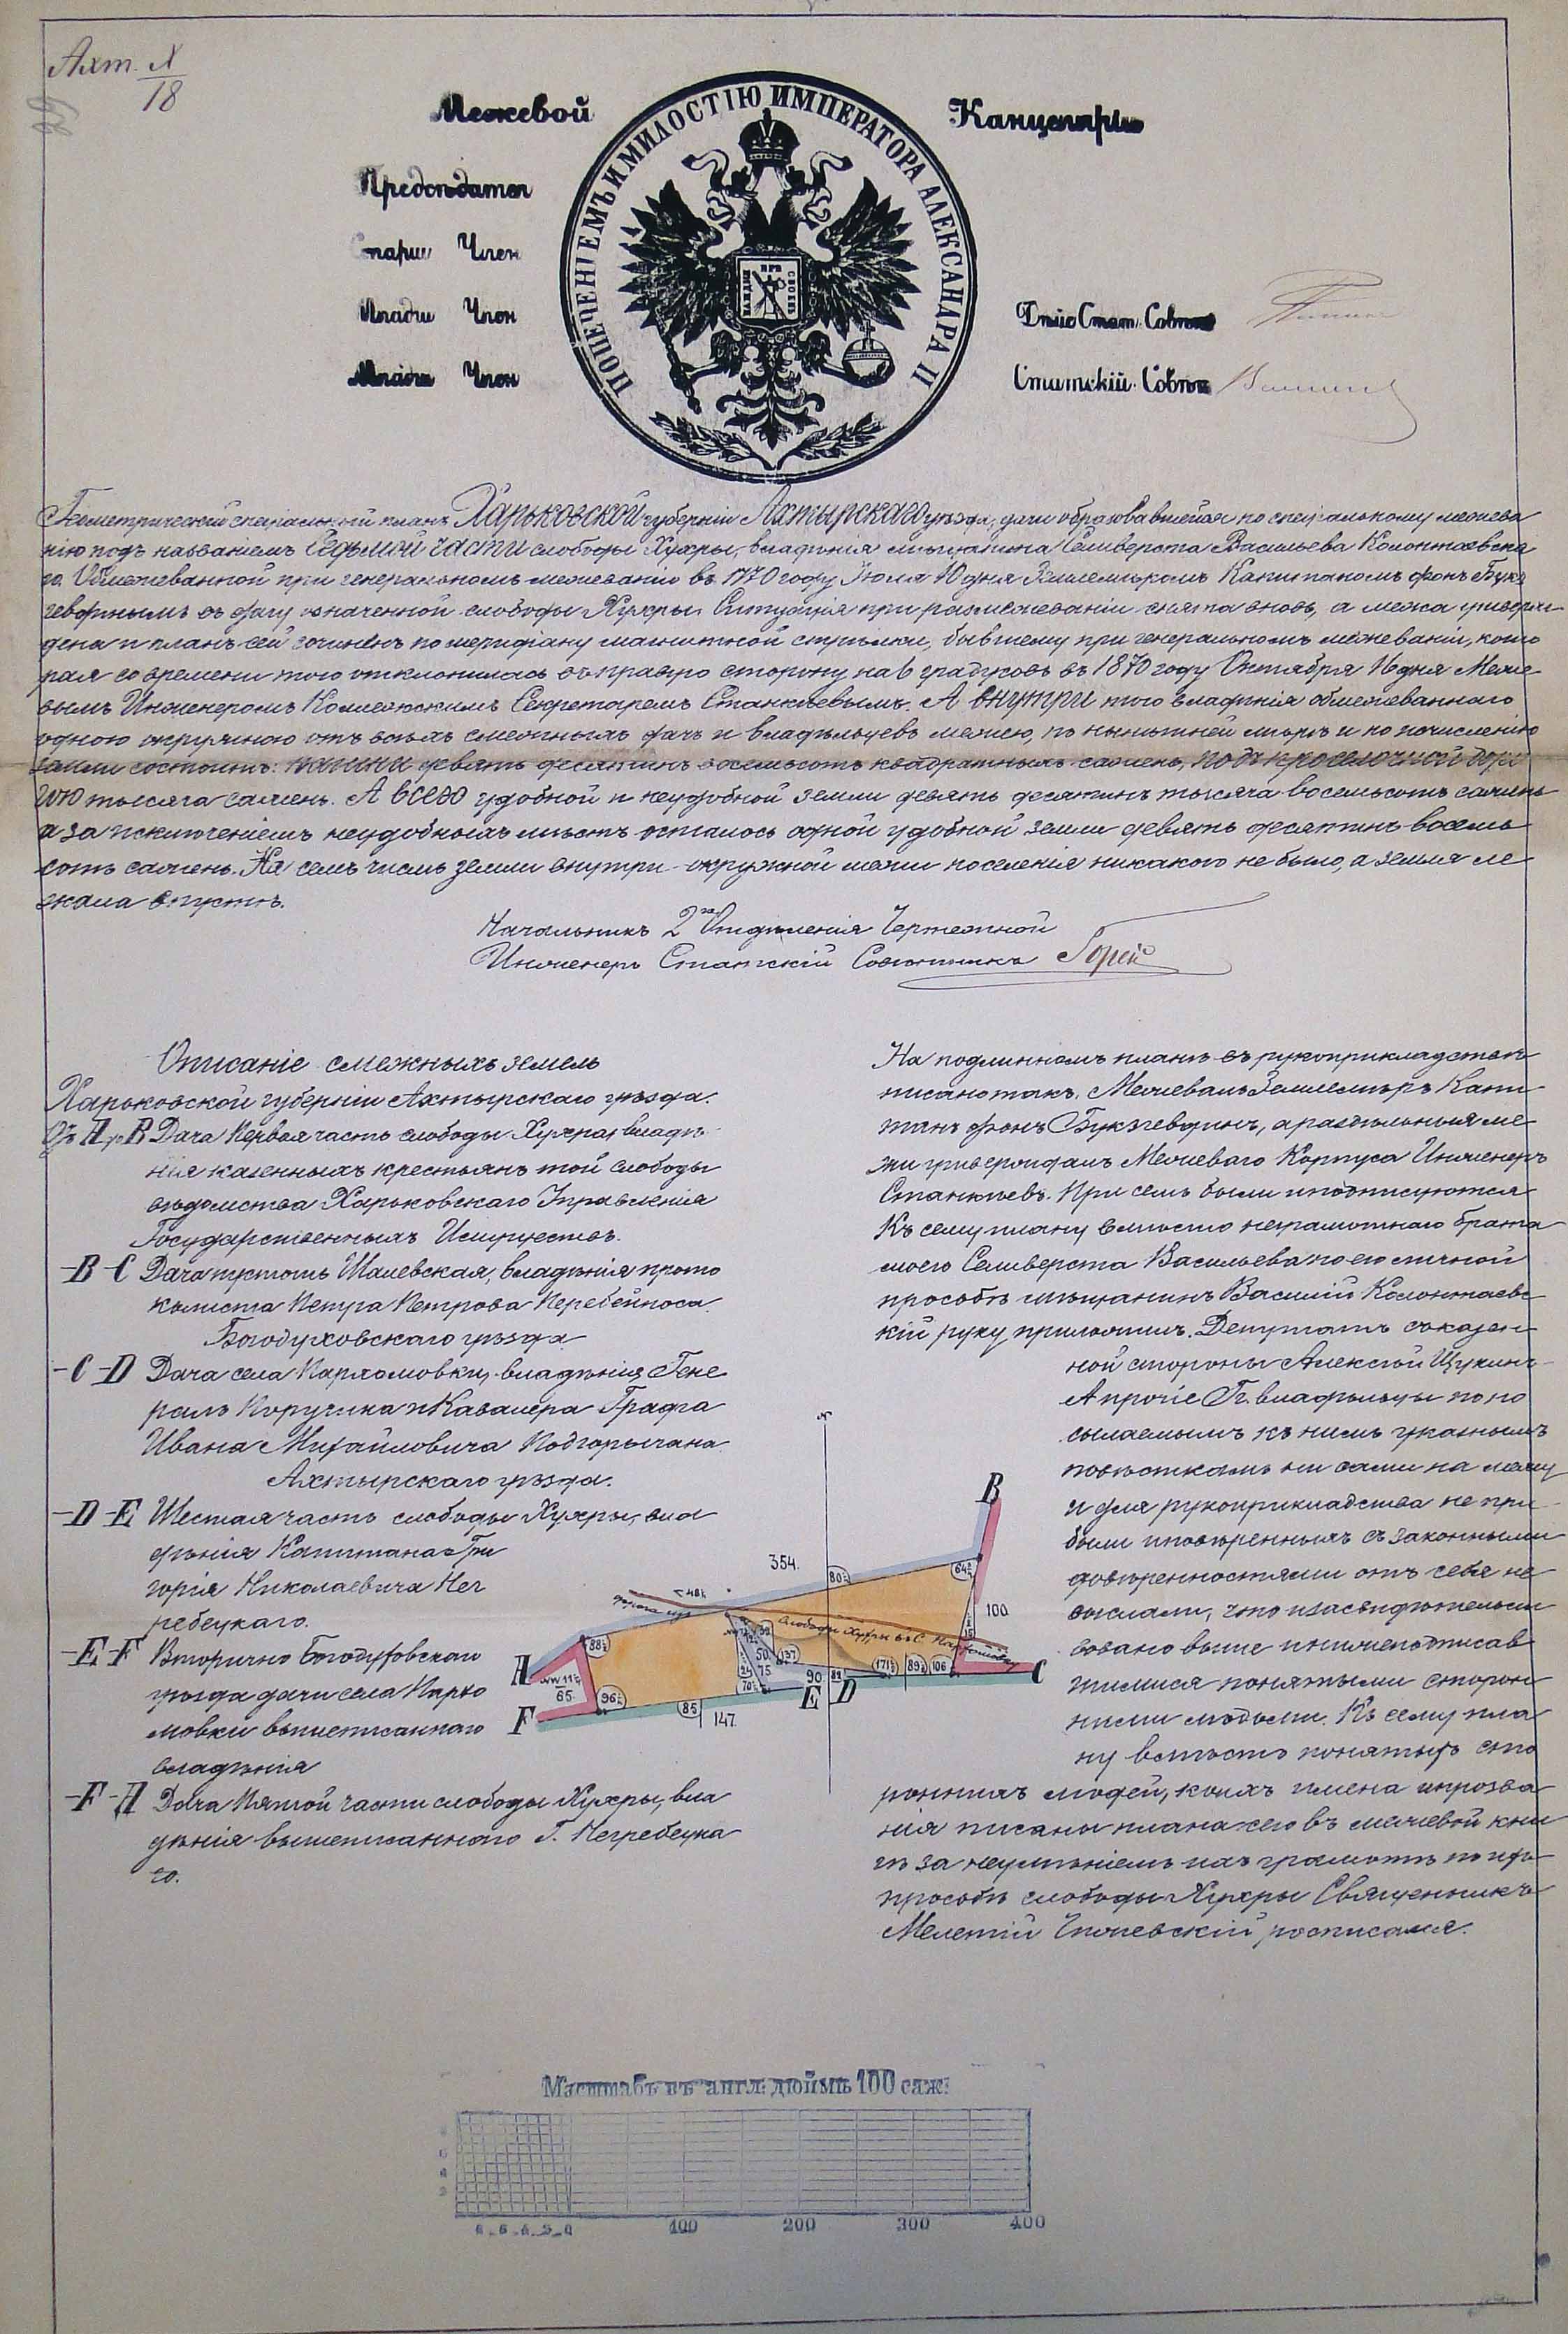 Ахт. N
18
Межевой Канцеляріи
ПОПЕЧЕНІЕМЪ И МИЛОСТІЮ ИМПЕРАТОРА АЛЕКСАНДРА II
Предсѣдател
Старш Член
Младш Член
Дѣйс Стат. Совѣт
Младш Член
Статскій Совѣт
Геометрическій спеціальный планъ Харьковской губерніи Ахтырскаго уѣзда, дачи образовавшейся по спеціальному межева
нію подъ названіемъ Седьмой части слободы Хухры, владѣнія мѣщанина Селиверста Васильева Колонтаевска
го. Обмежеванной при генеральномъ межеваніи въ 1770 году Іюля 10 дня Землемѣромъ Капитаномъ фонъ Букс
гевфтнымъ въ дачу означенной слободы Хухры. Ситуація при размежеваніи снята вновь, а межа утверж
дена и планъ сей сочиненъ по меридіану магнитной стрѣлки, бывшему при генеральномъ межеваніи, кото
рая со времени того отклонилась въ правую сторону на 6 градусовъ въ 1870 году Октября 16 дня Меже
вымъ Инженеромъ Коллежскимъ Секретаремъ Станкѣевымъ. А внутри того владѣнія обмежеваннаго
одною окружною отъ всѣхъ смежныхъ дачъ и владѣльцевъ межею, по нынѣшней мѣрѣ и по исчисленію
земли состоитъ: пашни девять десятинъ восемьсотъ квадратныхъ сажень, подъ проселочной доро
гою тысяча сажень. А всего удобной и неудобной земли девять десятинъ тысяча восемьсотъ сажень
а за исключеніемъ неудобныхъ мѣстъ осталось одной удобной земли девять десятинъ восемь
сотъ сажень. На семъ числѣ земли внутри окружной межи поселенія никакого не было, а земля ле
жала впустѣ.
Начальникъ 2го Отдѣленія Чертежной
Инженеръ Статскій Совѣтникъ
Описаніе смежныхъ земель
Харьковской губерніи Ахтырскаго уѣзда.
Отъ А до В Дача Первая часть слободы Хухры, владѣ
нія казенныхъ крестьянъ той слободы
вѣдомства Харьковскаго Управленія
Государственныхъ Имуществъ.
—В—С Дача пустошь Шалевская, владѣнія прото
колиста Петра Петрова Перебейноса.
Богодуховскаго уѣзда
—С—D Дача села Пархомовки, владѣнія Гене
ралъ Поручика и Кавалера Графа
Ивана Михайловича Подгоричана
Ахтырскаго уѣзда.
—D—Е Шестая часть слободы Хухры, вла
дѣнія Капитана Гри
горія Николаевича Нег
ребецкаго.
—Е—F Вторично Богодуховскаго
уѣзда дачи села Пархо
мовки вышеписаннаго
владѣнія
—F—А Дача Пятой части слободы Хухры, вла
дѣнія вышеписаннаго Г. Негребецка
го.
На подлинномъ планѣ въ рукоприкладствѣ
писано такъ, Межевалъ Землемѣръ Капи
танъ фонъ Буксгевфтнъ, а раздѣльныя ме
жи утверждалъ Межеваго Корпуса Инженеръ
Станкѣевъ. При семъ были и подписуются
Къ сему плану вмѣсто неграмотнаго брата
моего Селиверста Васильева по его личной
прозьбѣ мѣщанинъ Василій Колонтаевс
кій руку приложилъ. Депутатъ съ казен
ной стороны Алексѣй Щукинъ
А прочіе Гг. владѣльцы по по
сылаемымъ къ нимъ указнымъ
повѣсткамъ ни сами на межу
и для рукоприкладства не при
были и повѣренныхъ съ законными
довѣренностями отъ себя не
выслали, что и засвидѣтельст
вовано выше и нижеподписав
шимися понятыми сторон
ними людьми. Къ сему пла
ну вмѣсто понятыхъ сто
роннихъ людей, коихъ имена и прозва
нія писаны плана сего въ межевой кни
гѣ за неумѣніемъ ихъ грамотѣ по ихъ
прозьбѣ слободы Хухры Священникъ
Мелетій росписался.
354.
100.
147
65.
90
А
В
С
D
Е
F
дорога изъ слободы Хухры въ С. Пархомовку
Масштабъ въ англ: дюймѣ 100 саж:
100 200 300 400